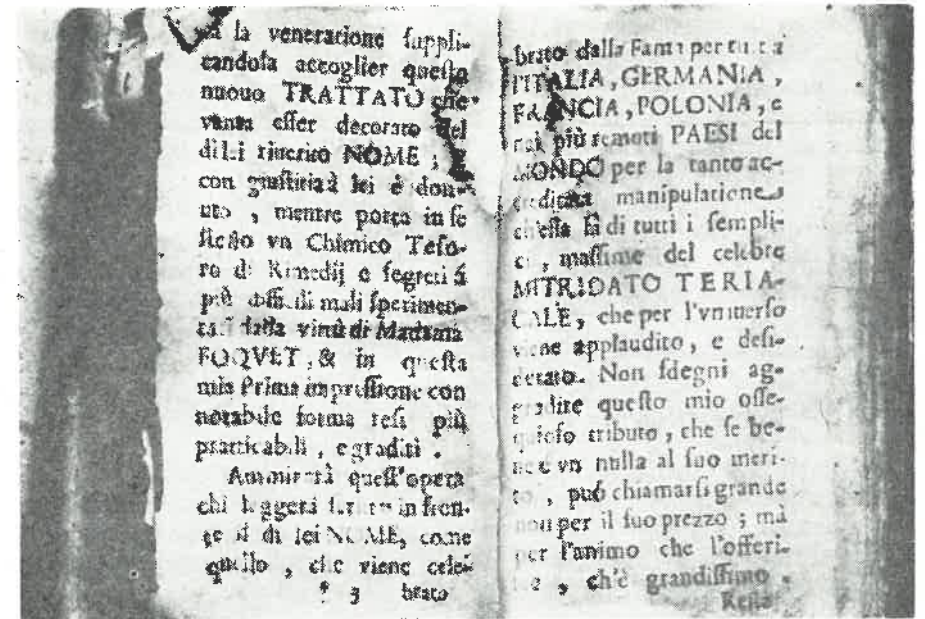 la veneratione suppli-
candola accoglier questo
nuouo TRATTATO che
vanta esser decorato del
di Lei riuerito NOME ;
con giustitia à lei è don-
uto , mentre porta in se
stesso vn Chimico Teso-
ro di Rimedij e segreti à
più diffi.di mali sperimen-
tati dalla virtù di Madama
FOQVET , & in questa
mia Prima impressione con
notabile forma resi più
practicabili , e graditi .
Ammirerà quest'opera
chi leggerà in fron-
te il di lei NOME, come
quello , che viene cele-
* 3 brato
brato dalla Fama per tutta
l'ITALIA, GERMANIA ,
FRANCIA, POLONIA, e
più remoti PAESI del
MONDO per la tanto ac-
creditata manipulatione
ch'essa fà di tutti i sempli-
ci , massime del celebre
MITRIDATO TERIA-
CALE, che per l'vniuerso
viene applaudito, e desi-
derato. Non sdegni ag-
gradire questo mio osse-
quioso tributo , che se be-
ne è vn nulla al suo meri-
to , può chiamarsi grande
non per il suo prezzo ; mà
per l'animo che l'offeri-
, ch'è grandissimo .
Resta